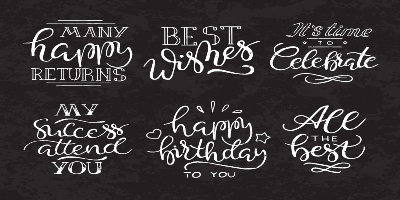 MANY
happy
RETURNS
BEST
Wishes
It's time
TO
Celebrate
MY
success
attend
YOU
happy
birthday
TO YOU
All
THE
best